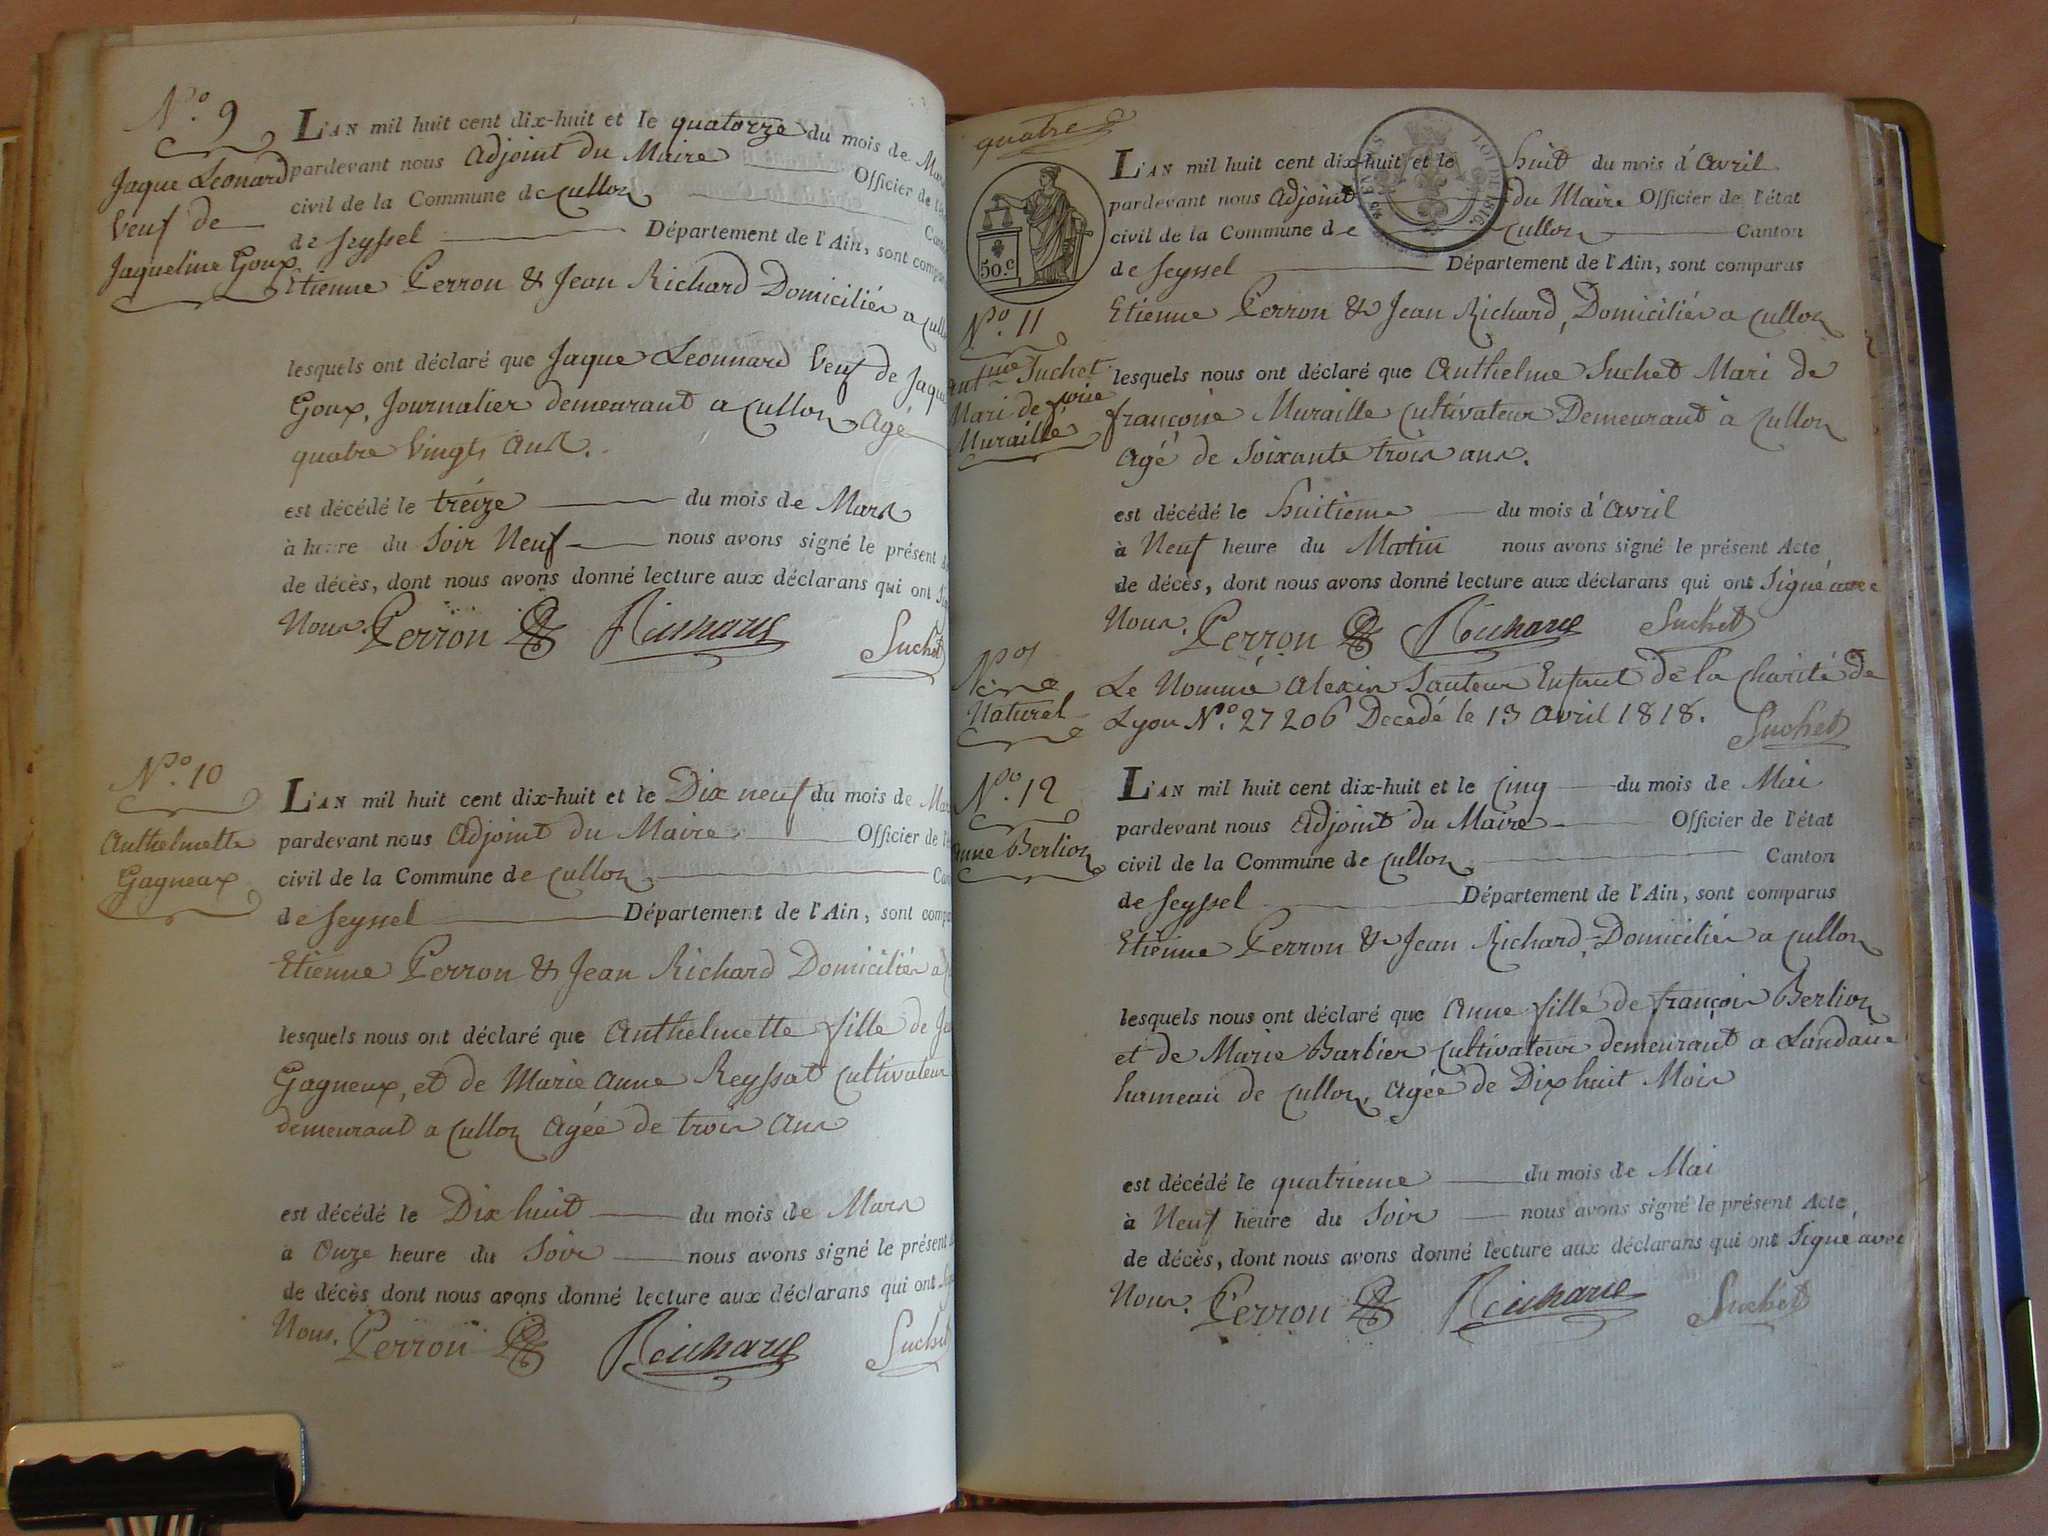 N.o 9
Jaque Leonard
Veuf de
Jaqueline Goux
L'AN mil huit cent dix-huit et le quatorze du mois de Mars
pardevant nous Adjoint du Maire Officier de l'
civil de la Commune de Culloz
de Seyssel Département de l'Ain, sont compa
Etienne Perron & Jean Richard Domiciliés a Cull
lesquels ont déclaré que Jaque Leonnard Veuf de Jaque
Goux, Journalier demeurant a Culloz Agé
quatre Vingts Ans.
est décédé le treize du mois de Mars
à heure du Soir Neuf nous avons signé le présent
de décès, dont nous avons donné lecture aux déclarans qui ont
Nous. Perron Richard Suchet
N.o 10
Anthelmette
Gagneux
L'AN mil huit cent dix-huit et le Dix neuf du mois de Ma
pardevant nous Adjoint du Maire Officier de l'
civil de la Commune de Culloz
de Seyssel Département de l'Ain, sont comp
Etienne Perron & Jean Richard Domiciliés a
lesquels nous ont déclaré que Anthelmette fille de
Gagneux, et de Marie Anne Reyssat Cultivateur
demeurant a Culloz Agée de trois Ans
est décédé le Dix huit du mois de Mars
à Onze heure du Soir nous avons signé le présent
de décès dont nous avons donné lecture aux déclarans qui ont
Nous. Perron Richard Suchet
quatre
50.c
N.o 11
Ant.me Suchet
Mari de f.çoise
Muraille
L'AN mil huit cent dix-huit et le huit du mois d'Avril
pardevant nous Adjoint du Maire Officier de l'état
civil de la Commune de Culloz Canton
de Seyssel Département de l'Ain, sont comparus
Etienne Perron & Jean Richard, Domiciliés a Culloz
lesquels nous ont déclaré que Anthelme Suchet Mari de
françoise Muraille Cultivateur Demeurant à Culloz
Agé de Soixante trois ans.
est décédé le huitieme du mois d'Avril
à Neuf heure du Matin nous avons signé le présent Acte
de décès, dont nous avons donné lecture aux déclarans qui ont Signé avec
Nous. Perron Richard Suchet
Naturel
Le Nommé Alexis Sauteur Enfant de la Charité de
Lyon N.o 27206 Decedé le 13 Avril 1818. Suchet
N.o 12
Anne Berlioz
L'AN mil huit cent dix-huit et le Cinq du mois de Mai
pardevant nous Adjoint du Maire Officier de l'état
civil de la Commune de Culloz Canton
de Seyssel Département de l'Ain, sont comparus
Etienne Perron & Jean Richard, Domiciliés a Culloz
lesquels nous ont déclaré que Anne fille de françois Berlioz
et de Marie Barbier Cultivateur demeurant a Landaise
hameau de Culloz, Agée de Dix huit Mois
est décédé le quatrieme du mois de Mai
à Neuf heure du Soir nous avons signé le présent Acte,
de décès, dont nous avons donné lecture aux déclarans qui ont Signé avec
Nous. Perron Richard Suchet